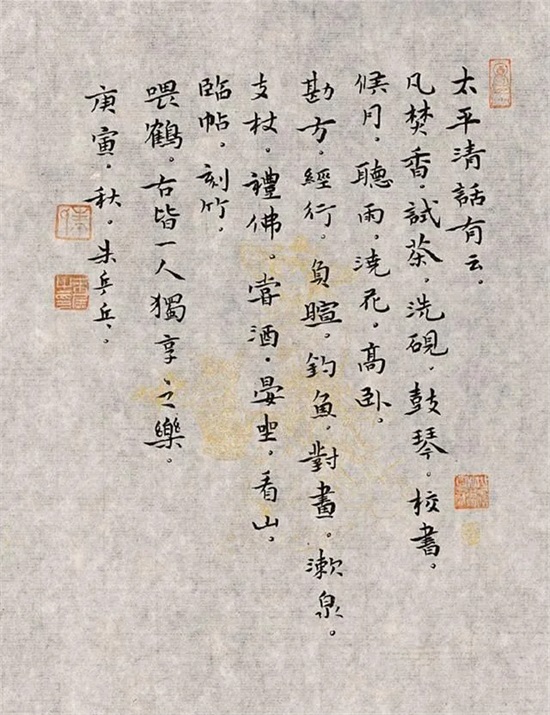 太平清話有云。
凡焚香。試茶。洗硯。鼓琴。校書。
候月。聽雨。澆花。高臥。
勘方。經行。負暄。釣魚。對畫。漱泉。
支杖。禮佛。嘗酒。晏坐。看山。
臨帖。刻竹。
喂鶴。右皆一人獨享之樂。
庚寅。秋。朱乒乓。